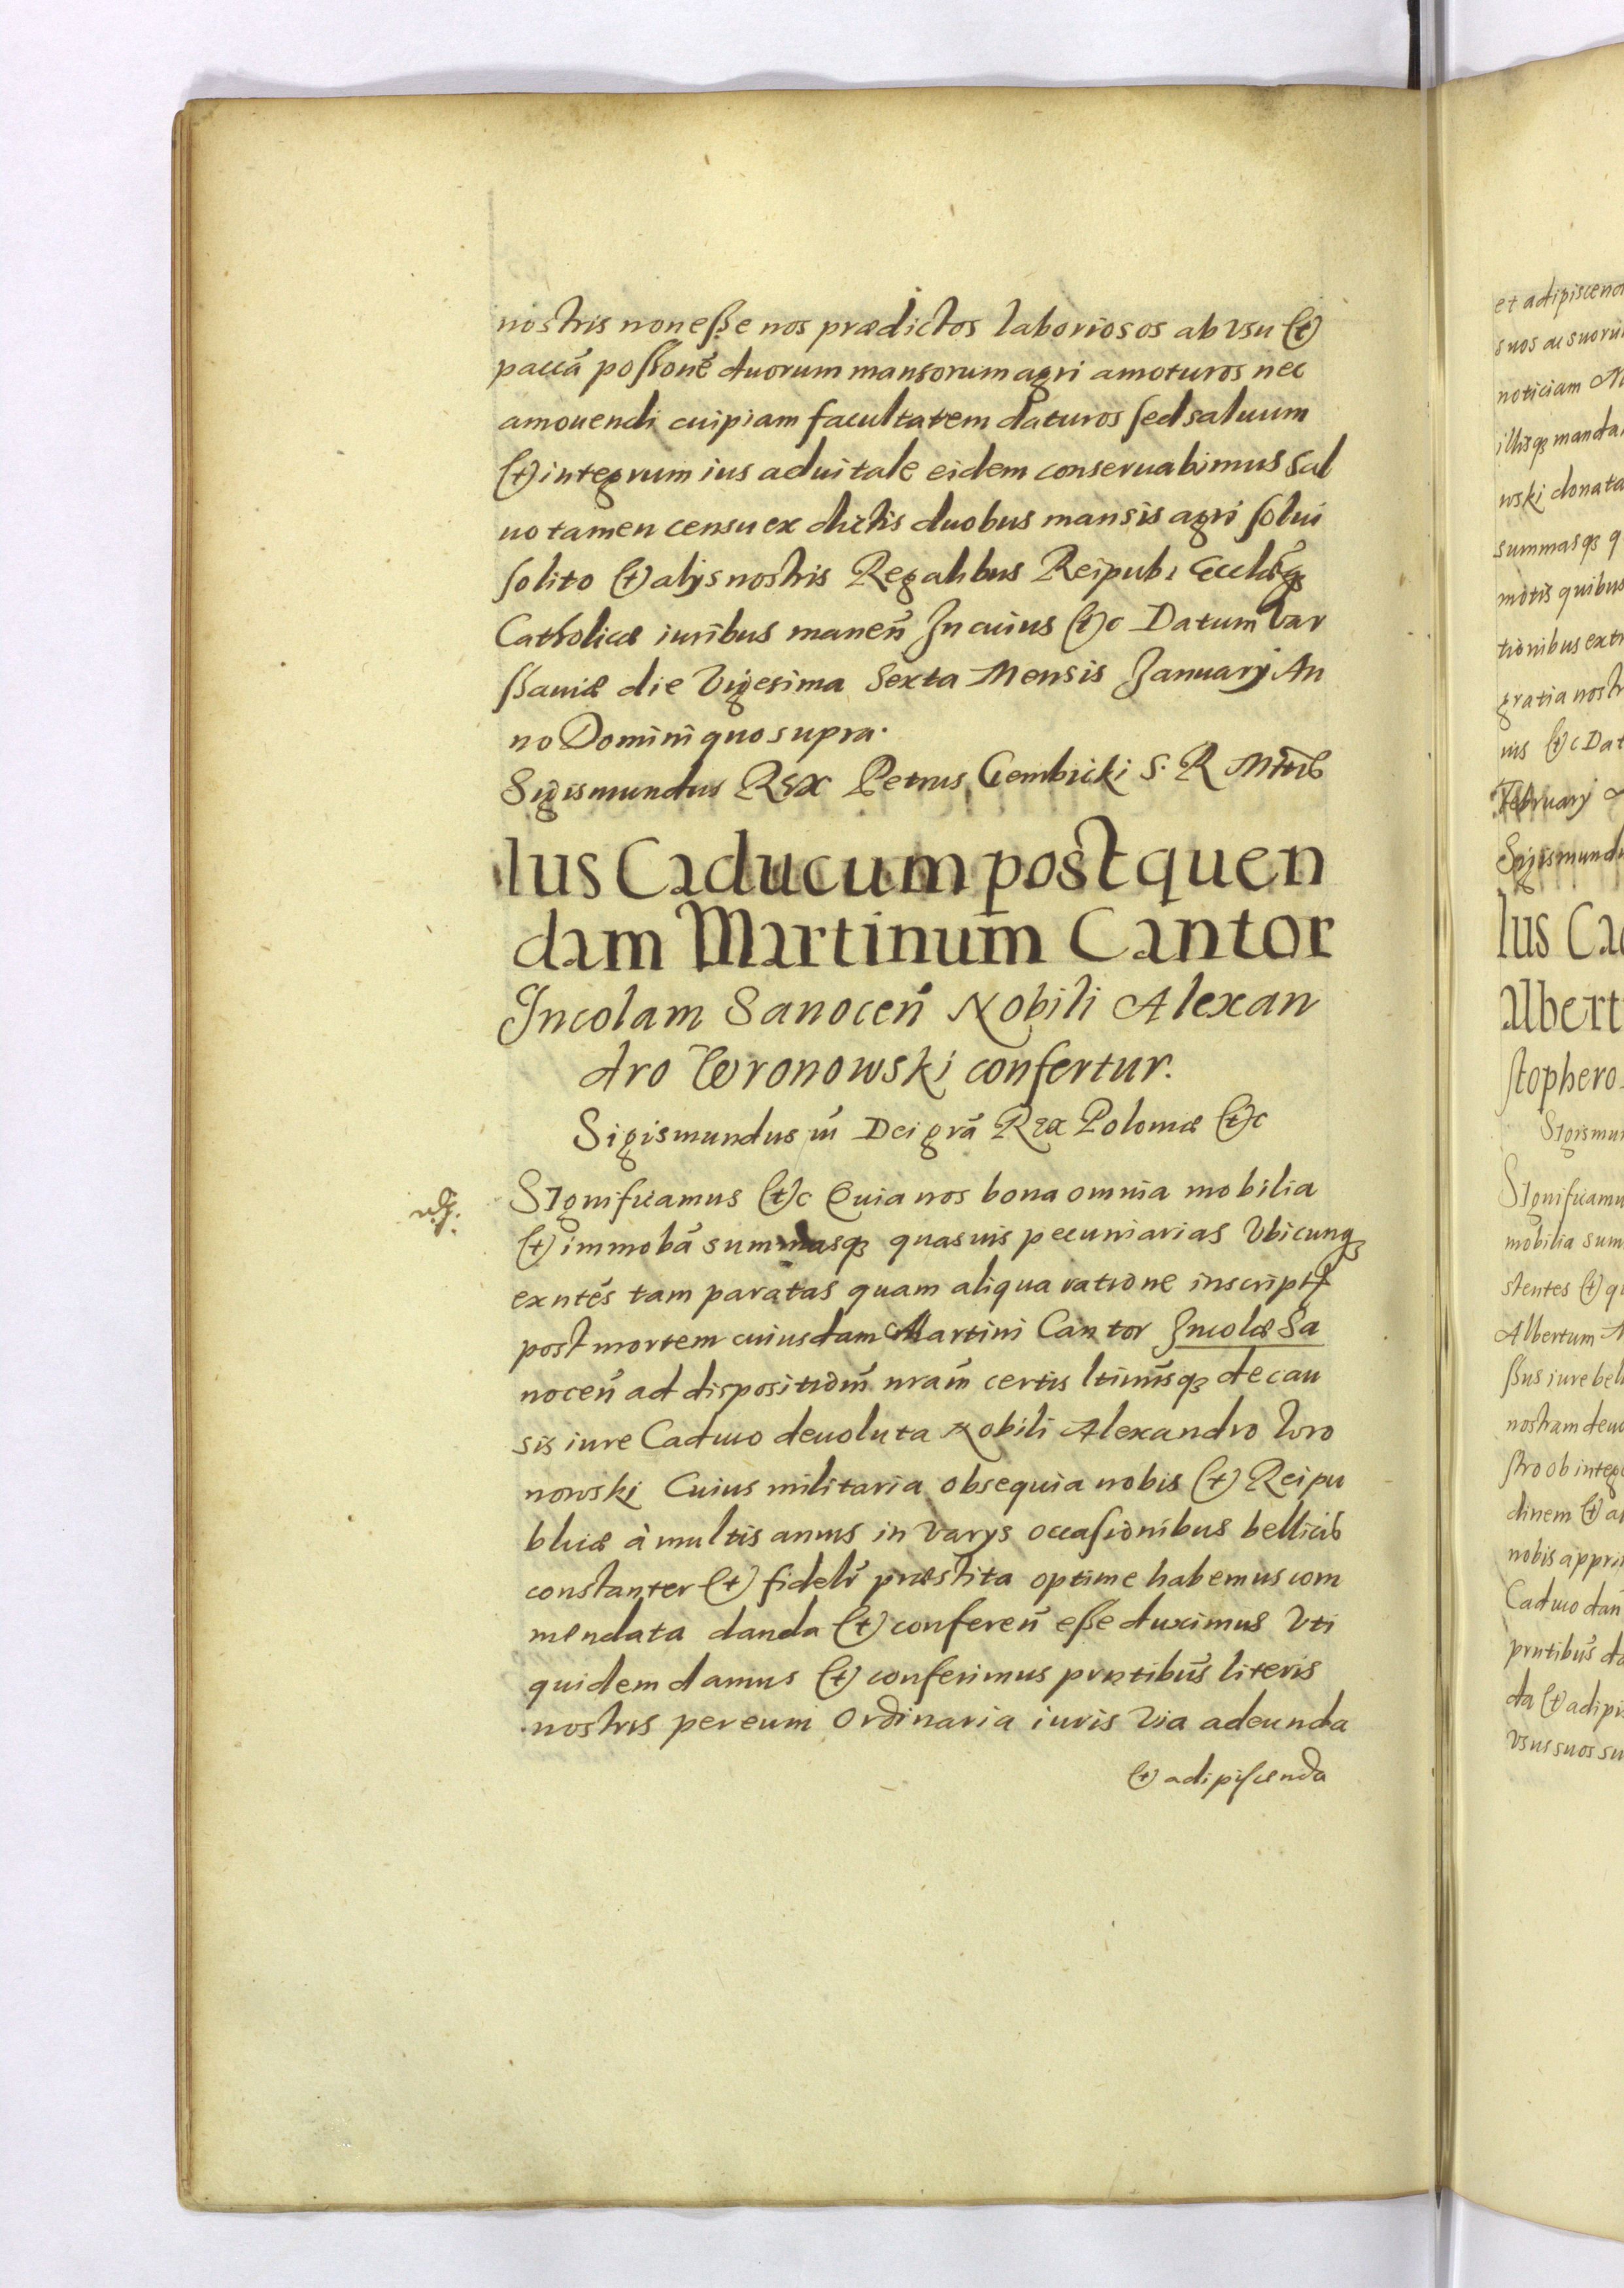 nostris non eſſe nos prædictos laboriosos ab vsu (et)
paccã poſſonẽ duorum mansorum agri amoturos nec
amouendi cuipiam facultatem daturos ſed saluum
(et) integrum ius aduitale eidem conseruabimus Sal
uo tamen censu ex dictis duobus mansis agri ſolui
ſolito (et) alÿs nostris Regalibus Reipub: Eccłæq3
Catholicæ iuribus maneñ In cuius (et)c Datum Var
ſſauiæ die Vigesima Sexta Mensis Januarÿ An
no Domini quo supra.
Sigismundus Rex Petrus Gembicki S. R. Mttis
Ius Caducum post quen
dam Martinum Cantor
Incolam Sanoceñ Nobili Alexan
dro Wronowski confertur.
Sigismundus iii Dei grã Rex Poloniæ (et)c
Significamus (et)c Quia nos bona omnia mobilia
(et) immobã summasq3 quasuis pecuniarias Vbicunq3
exntẽs tam paratas quam aliqua ratione inscriptas
post mortem cuiusdam Martini Cantor Incolæ Sa
noceñ ad dispositionẽ nram̃ certis ltimisq3 de cau
sis iure Caduco deuoluta Nobili Alexandro Wro
nowski Cuius militaria obsequia nobis (et) Reipu
blicæ à multis annis in Varÿs occaſionibus bellicis
constanter (et) fidelr̃ præstita optime habemus com
mendata danda (et) confereñ eſſe duximus Vti
quidem damus (et) conferimus prntibũs literis
nostris per eum Ordinaria iuris Via adeunda
(et) adipiſcenda
et adipiscend
suos ac suoru
noticiam
illisq3 manda
wski donata
summasq3 q
motis quibus
tionibus ext
gratia nostr
uis (et)c Dat
Februarÿ
Sigismund
Ius Ca
Albert
ſtophero
Sigismu
Significamu
mobilia sum
stentes (et) qu
Albertum
ſſus iure bel
nostram deuo
ſtro ob integ
dinem (et) a
nobis appri
Caduco dan
prntibũs da
da (et) adipis
Vsus suos su